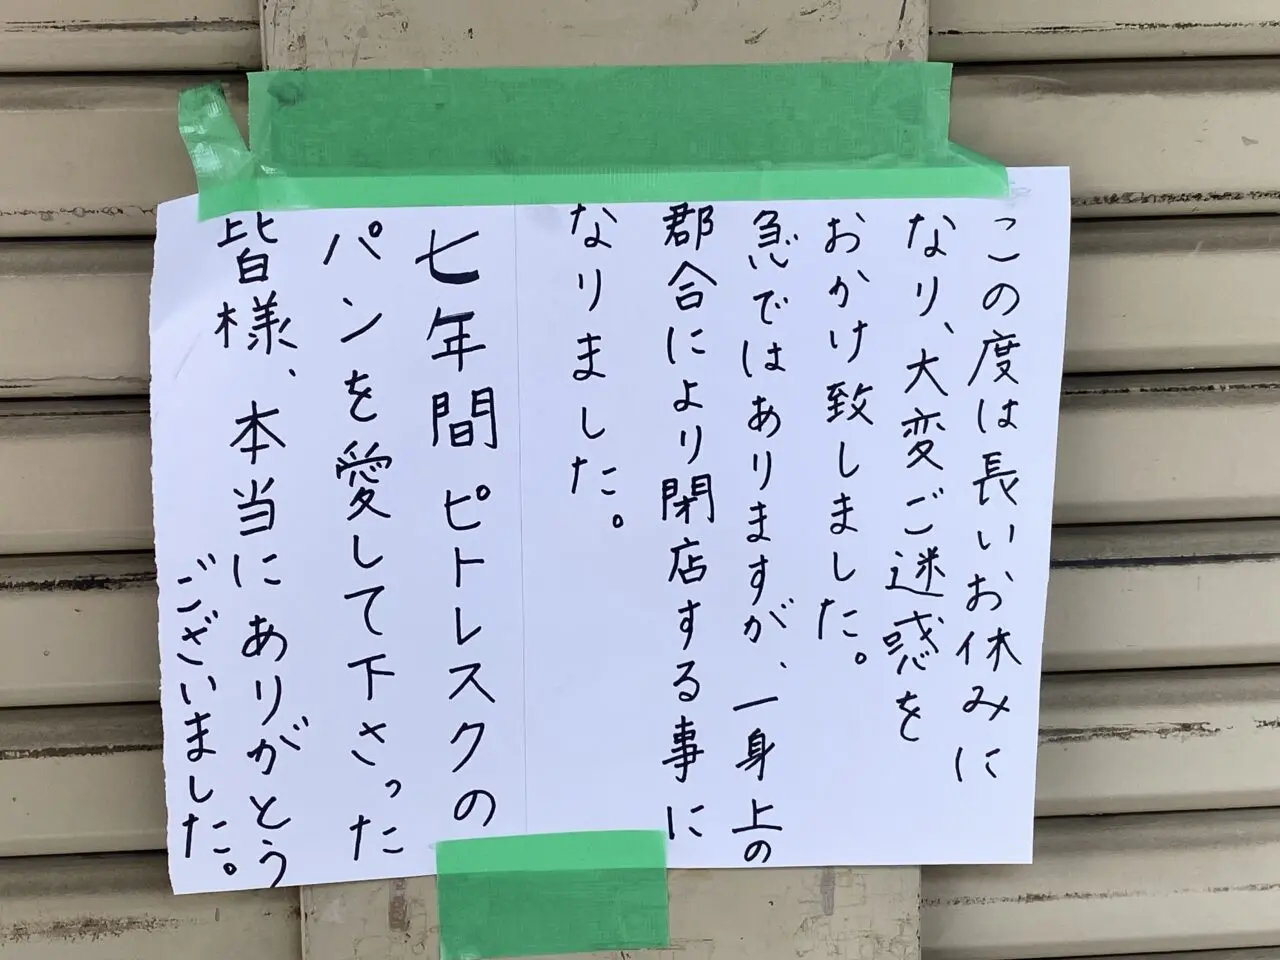 この度は長いお休みに
なり、大変ご迷惑を
おかけ致しました。
急ではありますが、一身上の
郡合により閉店する事に
なりました。
七年間ピトレスクの
パンを愛して下さった
皆様、本当にありがとう
ございました。